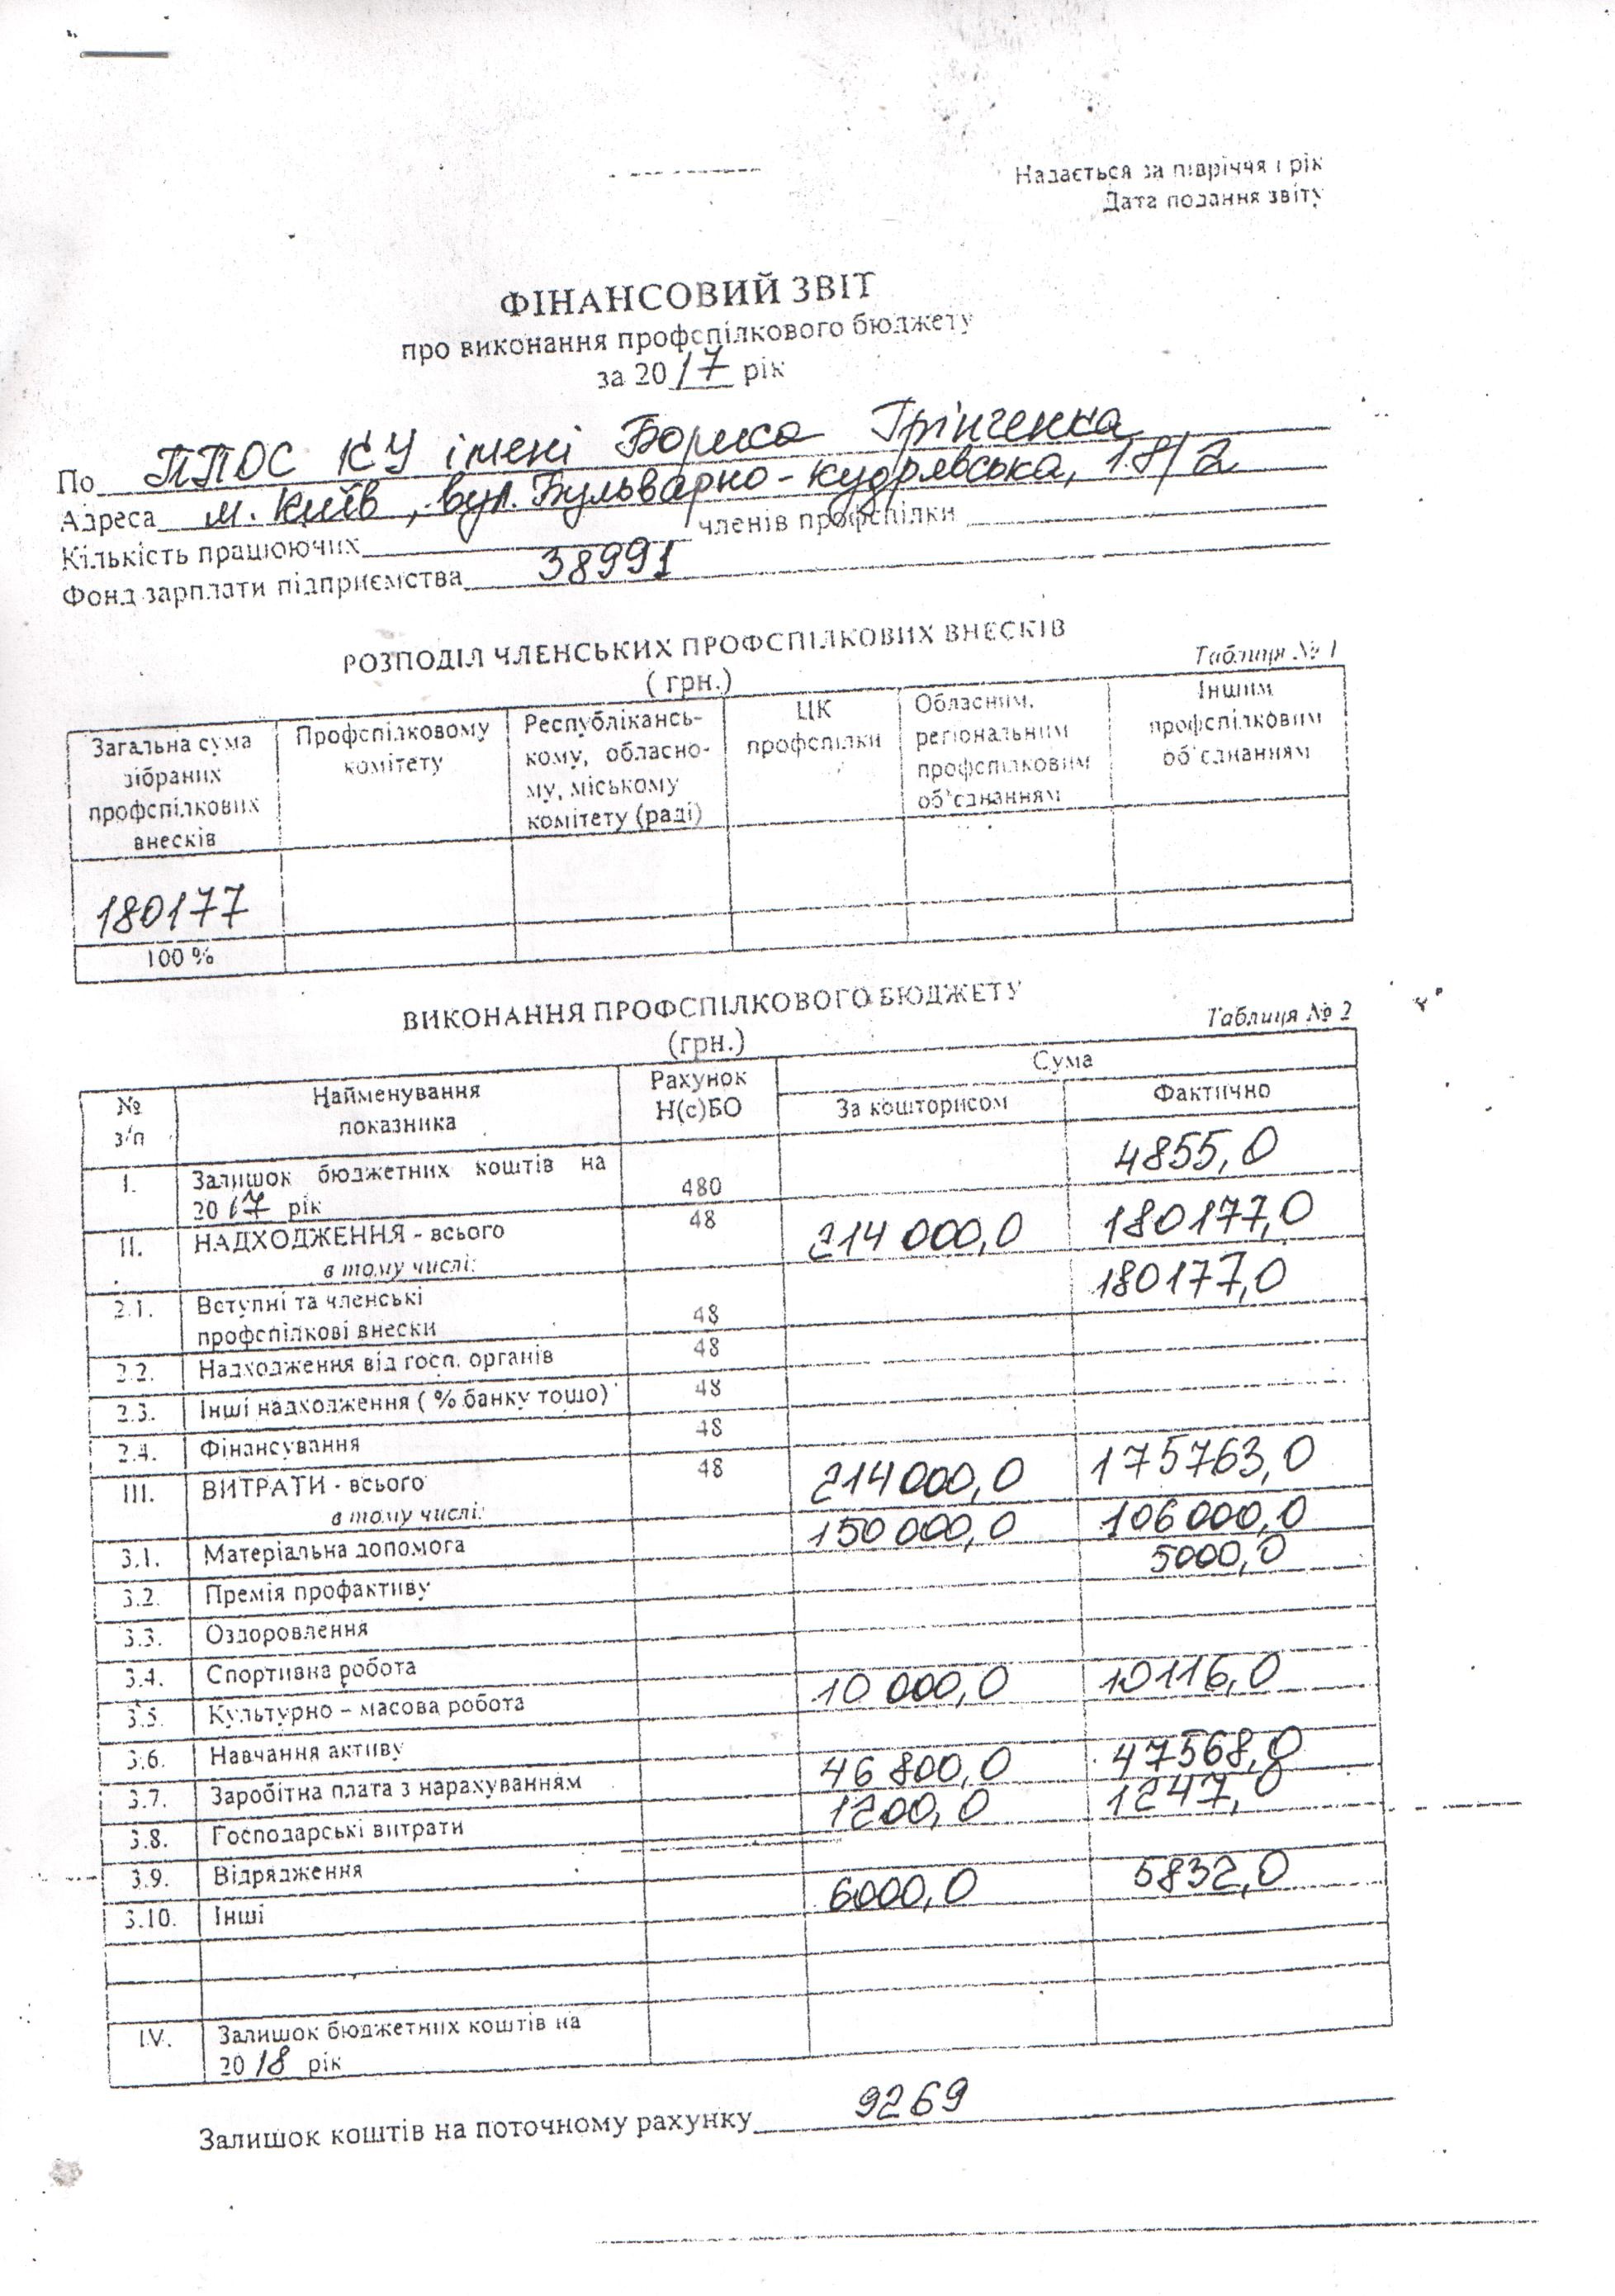 Надається за півріччя і рік
Дата подання звіту
ФІНАНСОВИЙ ЗВІТ
про виконання профспілкового бюджету
за 2017 рік
По ППОС КУ імені Бориса Грінченка
Адреса м. Київ, вул. Бульварно-Кудрявська, 18/2
Кількість працюючих членів профспілки
Фонд зарплати підприємства 38991
РОЗПОДІЛ ЧЛЕНСЬКИХ ПРОФСПІЛКОВИХ ВНЕСКІВ
Таблиця № 1
( грн.)
Загальна сума зібраних профспілкових внесків
Профспілковому комітету
Республікансь-
кому, обласно-
му, міському
комітету (раді)
ЦК профспілки
Обласним, регіональним профспілковим об'єднанням
Іншим профспілковим об'єднанням
180177
100 %
ВИКОНАННЯ ПРОФСПІЛКОВОГО БЮДЖЕТУ
Таблиця № 2
(грн.)
№ з/п Найменування показника Рахунок Н(с)БО Сума
За кошторисом Фактично
I. Залишок бюджетних коштів на 2017 рік 480 4855,0
II. НАДХОДЖЕННЯ - всього 48 214 000,0 180177,0
в тому числі:
2.1. Вступні та членські профспілкові внески 48 180177,0
2.2. Надходження від госп. органів 48
2.3. Інші надходження ( % банку тощо) 48
2.4. Фінансування 48
III. ВИТРАТИ - всього 48 214000,0 175763,0
в тому числі:
3.1. Матеріальна допомога 150 000,0 106 000,0
3.2. Премія профактиву 5000,0
3.3. Оздоровлення
3.4. Спортивна робота
3.5. Культурно – масова робота 10 000,0 10116,0
3.6. Навчання активу
3.7. Заробітна плата з нарахуванням 46 800,0 47568,0
3.8. Господарські витрати 1200,0 1247,0
3.9. Відрядження
3.10. Інші 6000,0 5832,0
I.V. Залишок бюджетних коштів на 2018 рік
Залишок коштів на поточному рахунку 9269